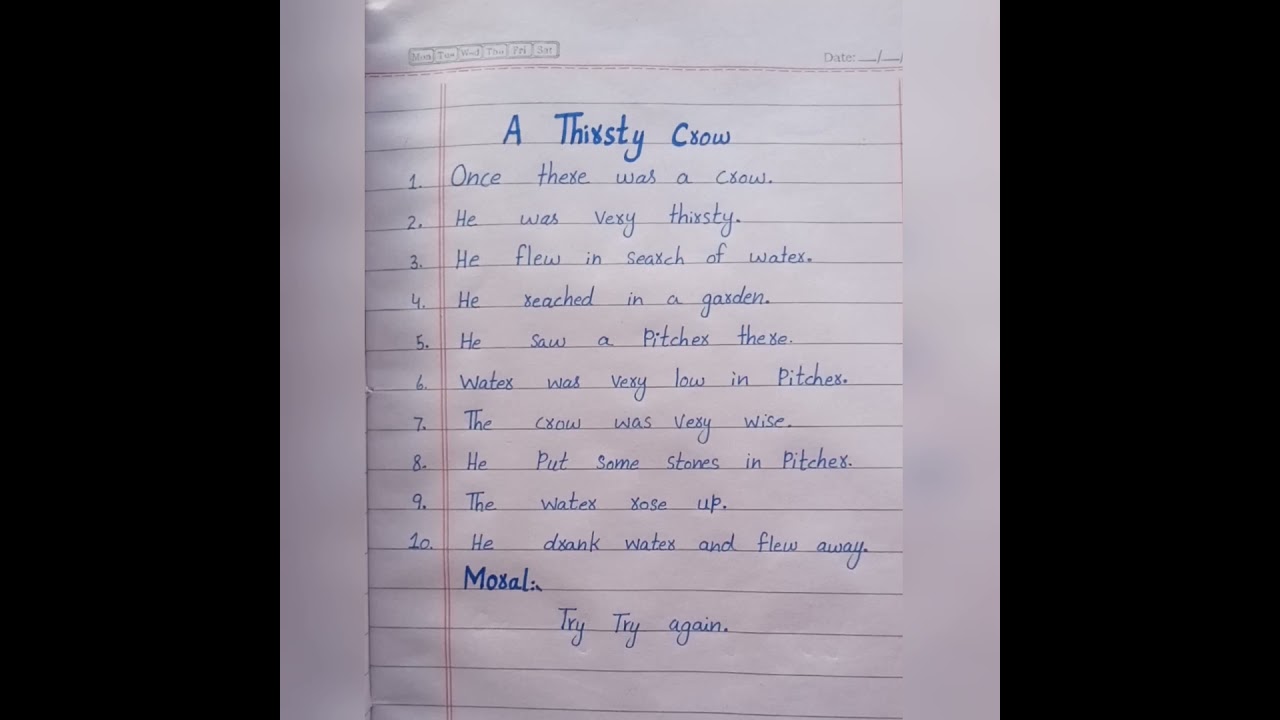 Mon Tue Wed Thu Fri Sat
Date: __/__/
A Thirsty Crow
1. Once there was a crow.
2. He was very thirsty.
3. He flew in search of water.
4. He reached in a garden.
5. He saw a Pitcher there.
6. Water was very low in Pitcher.
7. The crow was very wise.
8. He Put some stones in Pitcher.
9. The water rose up.
10. He drank water and flew away.
Moral:-
Try Try again.